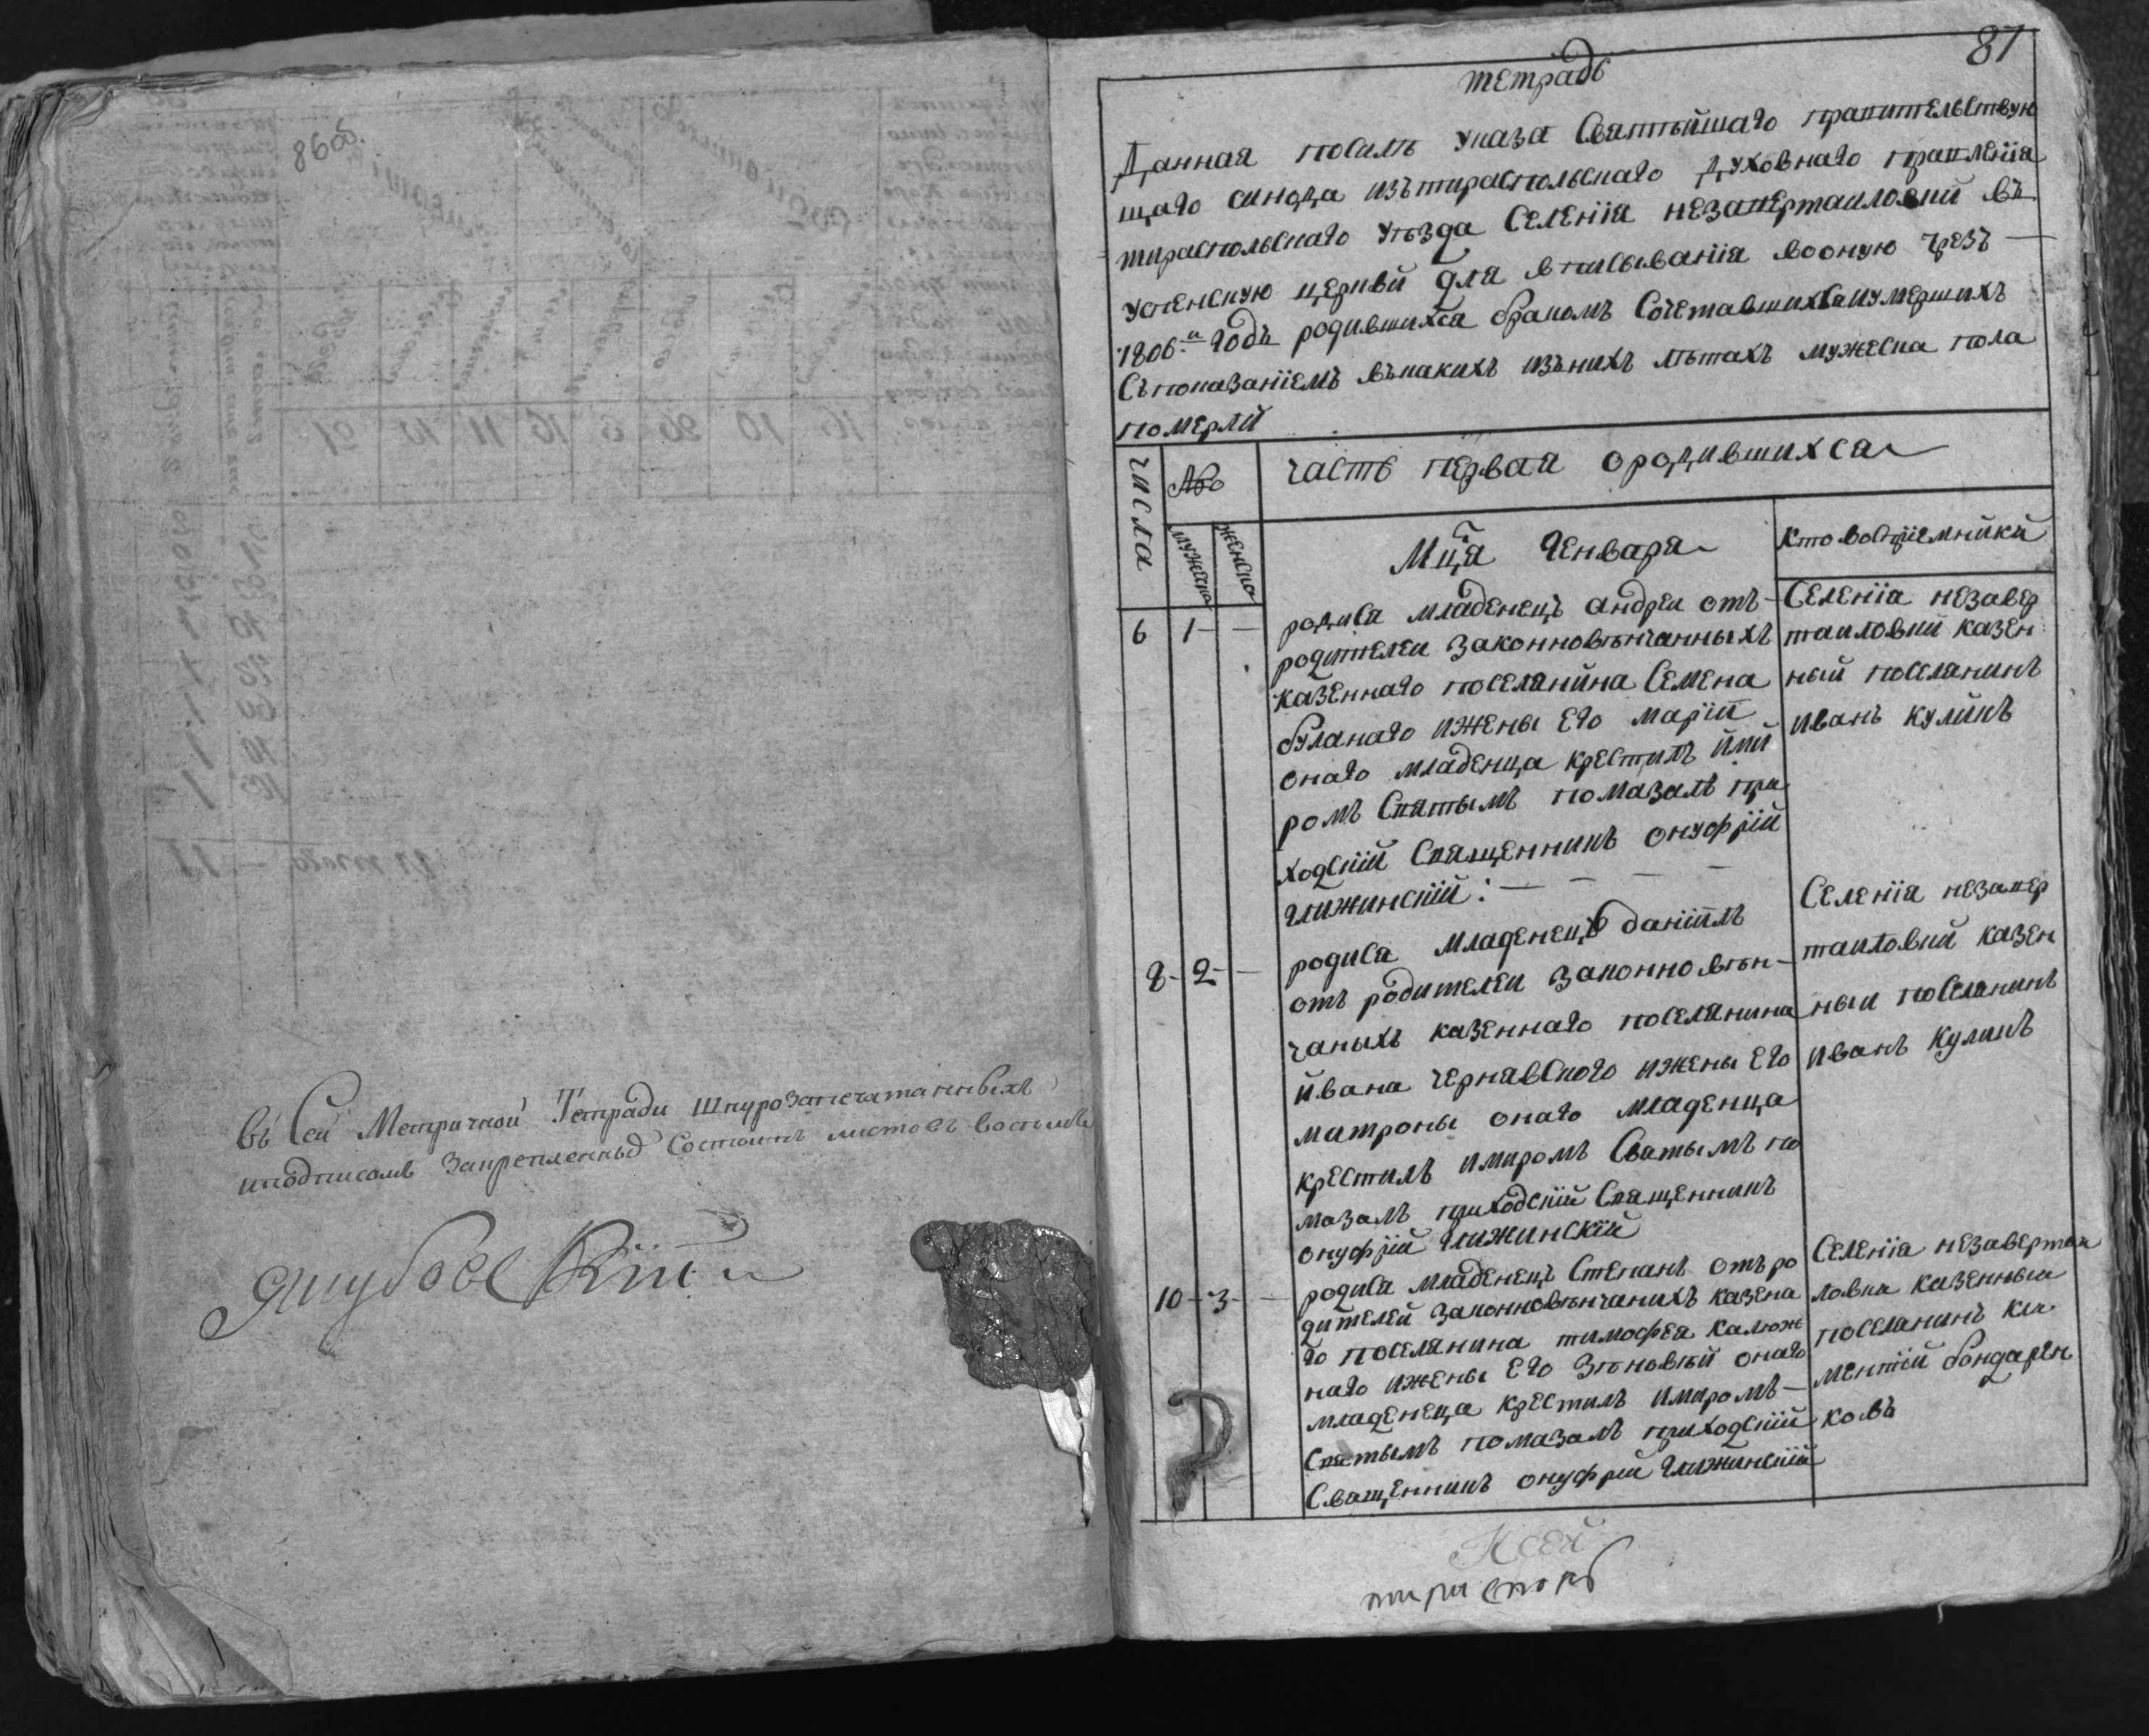 86 об.
въ Сей Метричной Тетради Шнурозапечатанныхъ
иподписомъ Закрепленныхъ Состоитъ листовъ восемь
Якубовскій
87
тетрадь
Данная посилъ указа Святѣйшаго правительствую
щаго синода изътираспольскаго духовнаго правленія
тираспольскаго уѣзда Селенія незавертаиловки въ
успенскую церквй для вписыванія вооную чрезъ
1806.й годъ родившихся бракомъ Сочетавшихся иумершихъ
Съпоказаніемъ въкакихъ изънихъ лѣтахъ мужеска пола
померлй
числа
№
часть первая ородившихся
мужеска
женска
Мца Генваря
Кто воспріемникй
6 1
родися младенецъ андреи отъ
родителеи законновѣнчанныхъ
казеннаго поселянйна Семена
буланаго ижены Его маріи
онаго младенца крестилъ ими
ромъ Святымъ помазалъ при
ходскій Священникъ онуфрій
глижинскій:
Селенія незавер
таиловки казен
ный поселянинъ
иванъ кулйкъ
8 2
родися младенецъ даніилъ
отъ родителеи законновѣн
чаныхъ казеннаго поселянина
йвана чернявского ижены Его
матроны онаго младенца
крестилъ имиромъ Святымъ по
мазалъ приходскій Священникъ
онуфрій глижинскій
Селенія незавер
таиловки казен
ныи поселянинъ
иванъ куликъ
10 3
родися младенецъ Степанъ отъ ро
дителей законновѣнчанихъ казена
го поселянина тимофея калюж
наго ижены Его Зѣновѣй онаго
младенеца крестилъ имиромъ
Святымъ помазалъ приходскій
Священникъ онуфрий глижинскій
Селенія незавертаи
ловки казенныи
поселянинъ кли
ментій бондарен
ковъ
Ксей